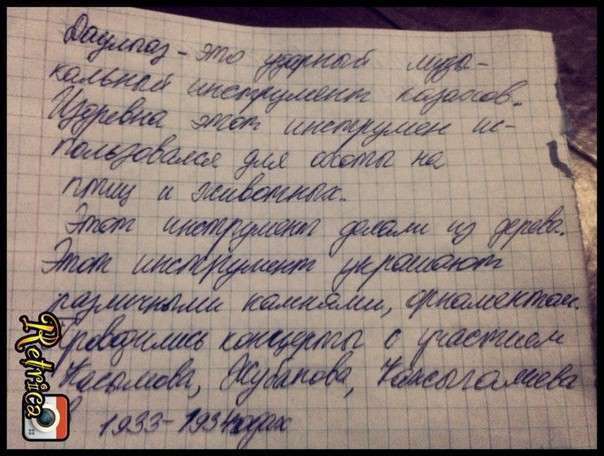 Даулпаз - это ударный музы-
кальный инструмент казахов.
Издревна этот инструмен ис-
пользовался для охоты на
птиц и животных.
Этот инструмент делали из дерева.
Этот инструмент украшают
различными камнями, орнаментом.
Проводились концерты с участием
Касымова, Жубанова,
1933-1934 годах
Retrica